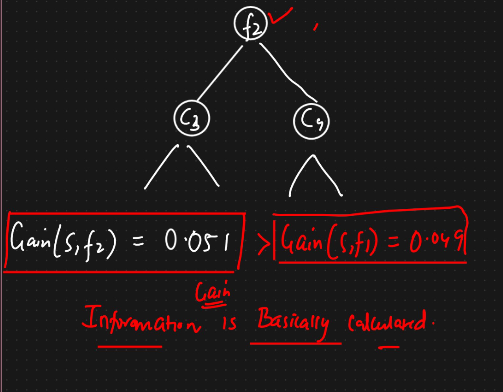 f2
C3
C4
Gain(S,f2) = 0.051 > Gain(S,f1) = 0.049
Gain
Information is Basically calculated.